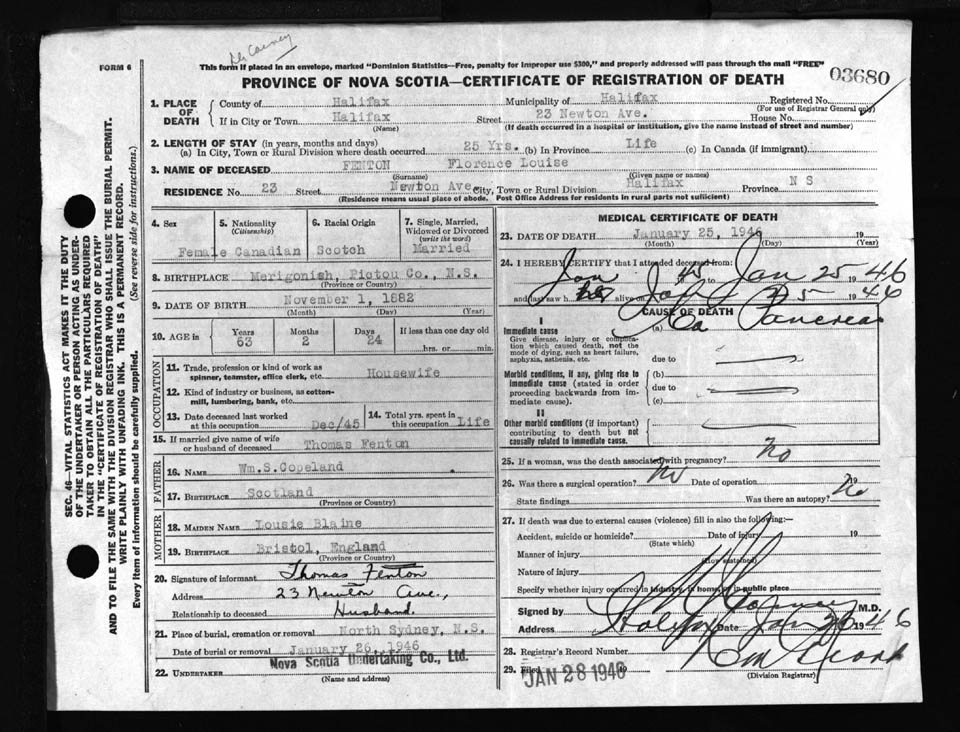 03680
FORM 6
This form if placed in an envelope, marked "Dominion Statistics—Free, penalty for improper use $300," and properly addressed will pass through the mail "FREE"
PROVINCE OF NOVA SCOTIA—CERTIFICATE OF REGISTRATION OF DEATH
SEC. 46—VITAL STATISTICS ACT MAKES IT THE DUTY
OF THE UNDERTAKER OR PERSON ACTING AS UNDER-
TAKER TO OBTAIN ALL THE PARTICULARS REQUIRED
IN THE "CERTIFICATE OF REGISTRATION OF DEATH"
AND TO FILE THE SAME WITH THE DIVISION REGISTRAR WHO SHALL ISSUE THE BURIAL PERMIT.
WRITE PLAINLY WITH UNFADING INK. THIS IS A PERMANENT RECORD.
Every item of information should be carefully supplied. (See reverse side for instructions.)
1. PLACE OF DEATH County of Halifax Municipality of Halifax Registered No.
(For use of Registrar General only)
If in City or Town Halifax Street 23 Newton Ave. House No.
(Name) (If death occurred in a hospital or institution, give the name instead of street and number)
2. LENGTH OF STAY (in years, months and days)
(a) In City, Town or Rural Division where death occurred 25 Yrs. (b) In Province Life (c) In Canada (if immigrant)
3. NAME OF DECEASED FENTON Florence Louise
(Surname) (Given name or names)
RESIDENCE No. 23 Street Newton Ave. City, Town or Rural Division Halifax Province N S
(Residence means usual place of abode. Post Office Address for residents in rural parts not sufficient)
4. Sex 5. Nationality (Citizenship) 6. Racial Origin 7. Single, Married, Widowed or Divorced (write the word)
Female Canadian Scotch Married
8. BIRTHPLACE Merigonish, Pictou Co., N.S.
(Province or Country)
9. DATE OF BIRTH November 1, 1882
(Month) (Day) (Year)
10. AGE in Years Months Days If less than one day old
63 2 24 hrs. or min.
OCCUPATION
11. Trade, profession or kind of work as
spinner, teamster, office clerk, etc. Housewife
12. Kind of industry or business, as cotton-
mill, lumbering, bank, etc.
13. Date deceased last worked at this occupation Dec/45 14. Total yrs. spent in this occupation Life
15. If married give name of wife
or husband of deceased Thomas Fenton
FATHER
16. NAME Wm.S.Copeland
17. BIRTHPLACE Scotland
(Province or Country)
MOTHER
18. MAIDEN NAME Lousie Blaine
19. BIRTHPLACE Bristol, England
(Province or Country)
20. Signature of informant Thomas Fenton
Address 23 Newton Ave.,
Relationship to deceased Husband.
21. Place of burial, cremation or removal North Sydney, N.S.
Date of burial or removal January 26, 1946
22. UNDERTAKER Nova Scotia Undertaking Co., Ltd.
(Name and address)
MEDICAL CERTIFICATE OF DEATH
23. DATE OF DEATH January 25, 1946 19
(Month) (Day) (Year)
24. I HEREBY CERTIFY that I attended deceased from:
Jan 45 to Jan 25 1946
and last saw her alive on Jan 25 1946
CAUSE OF DEATH
I
Immediate cause (a) Ca Pancreas
Give disease, injury or complica-
tion which caused death, not the
mode of dying, such as heart failure,
asphyxia, asthenia, etc. due to
Morbid conditions, if any, giving rise to (b)
immediate cause (stated in order due to
proceeding backwards from im-
mediate cause). (c)
II
Other morbid conditions (if important)
contributing to death but not
causally related to immediate cause.
25. If a woman, was the death associated with pregnancy? No
26. Was there a surgical operation? No Date of operation 19
State findings Was there an autopsy? No
27. If death was due to external causes (violence) fill in also the following:—
Accident, suicide or homicide? Date of injury 19
(State which)
Manner of injury
(How sustained)
Nature of injury
Specify whether injury occurred in industry, in home, or in public place
Signed by M.D.
Address Halifax Date Jan 26 1946
28. Registrar's Record Number
29. Filed JAN 28 1946 19
(Division Registrar)